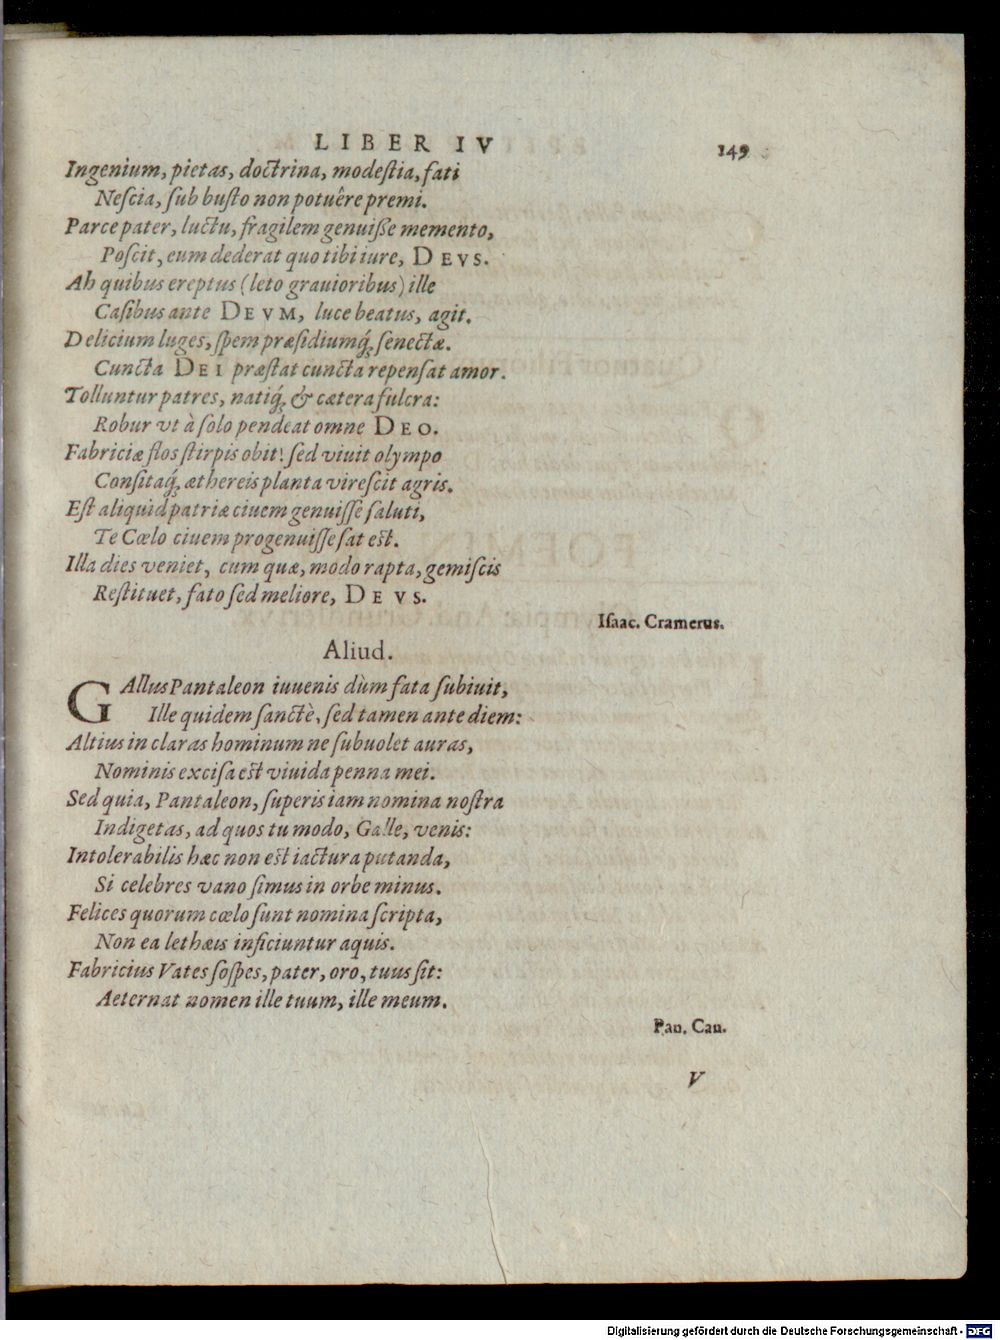 LIBER IV 149
Ingenium, pietas, doctrina, modeſtia, fati
Neſcia, ſub buſto non potuêre premi.
Parce pater, luctu, fragilem genuiſſe memento,
Poſcit, eum dederat quo tibi iure, DEVS.
Ah quibus ereptus (leto grauioribus) ille
Caſibus ante DEVM, luce beatus, agit.
Delicium luges, ſpem præſidiumq́; ſenectæ.
Cuncta DEI præſtat cuncta repenſat amor.
Tolluntur patres, natiq́; & cætera fulcra:
Robur vt à ſolo pendeat omne DEO.
Fabriciæ flos ſtirpis obit! ſed viuit olympo
Conſitaq́; æthereis planta vireſcit agris.
Eſt aliquid patriæ ciuem genuiſſe ſaluti,
Te Cœlo ciuem progenuiſſe ſat eſt.
Illa dies veniet, cum quæ, modo rapta, gemiſcis
Reſtituet, fato ſed meliore, DEVS.
Iſaac. Cramerus.
Aliud.
GAllus Pantaleon iuuenis dùm fata ſubiuit,
Ille quidem ſanctè, ſed tamen ante diem:
Altius in claras hominum ne ſubuolet auras,
Nominis exciſa eſt viuida penna mei.
Sed quia, Pantaleon, ſuperis iam nomina noſtra
Indigetas, ad quos tu modo, Galle, venis:
Intolerabilis hæc non eſt iactura putanda,
Si celebres vano ſimus in orbe minus.
Felices quorum cœlo ſunt nomina ſcripta,
Non ea lethæis inficiuntur aquis.
Fabricius Vates ſoſpes, pater, oro, tuus ſit:
Aeternat nomen ille tuum, ille meum.
Pau. Cau.
V
Digitalisierung gefördert durch die Deutsche Forschungsgemeinschaft - DFG